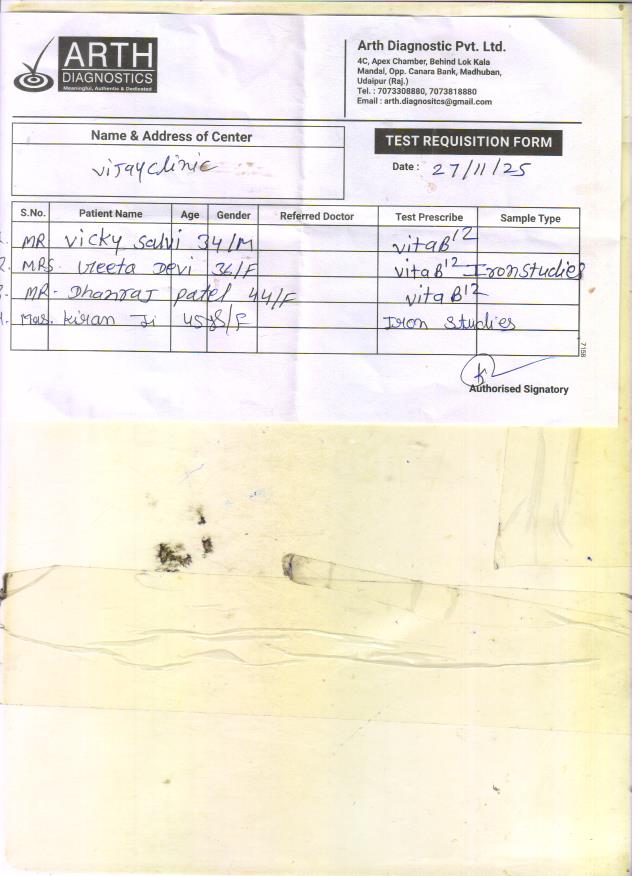 ARTH
DIAGNOSTICS
Meaningful, Authentic & Dedicated
Arth Diagnostic Pvt. Ltd.
4C, Apex Chamber, Behind Lok Kala
Mandal, Opp. Canara Bank, Madhuban,
Udaipur (Raj.)
Tel. : 7073308880, 7073818880
Email : arth.diagnositcs@gmail.com
Name & Address of Center
vijay clinic
TEST REQUISITION FORM
Date : 27/11/25
S.No. Patient Name Age Gender Referred Doctor Test Prescribe Sample Type
1. MR vicky salvi 34/M vita B12
2. MRS. Veeta Devi /F vita B12 Iron studies
3. MR. Dhanraj patel 44/F vita B12
4. Mrs. Kiran Ji 45 /F Iron studies
7158
Authorised Signatory